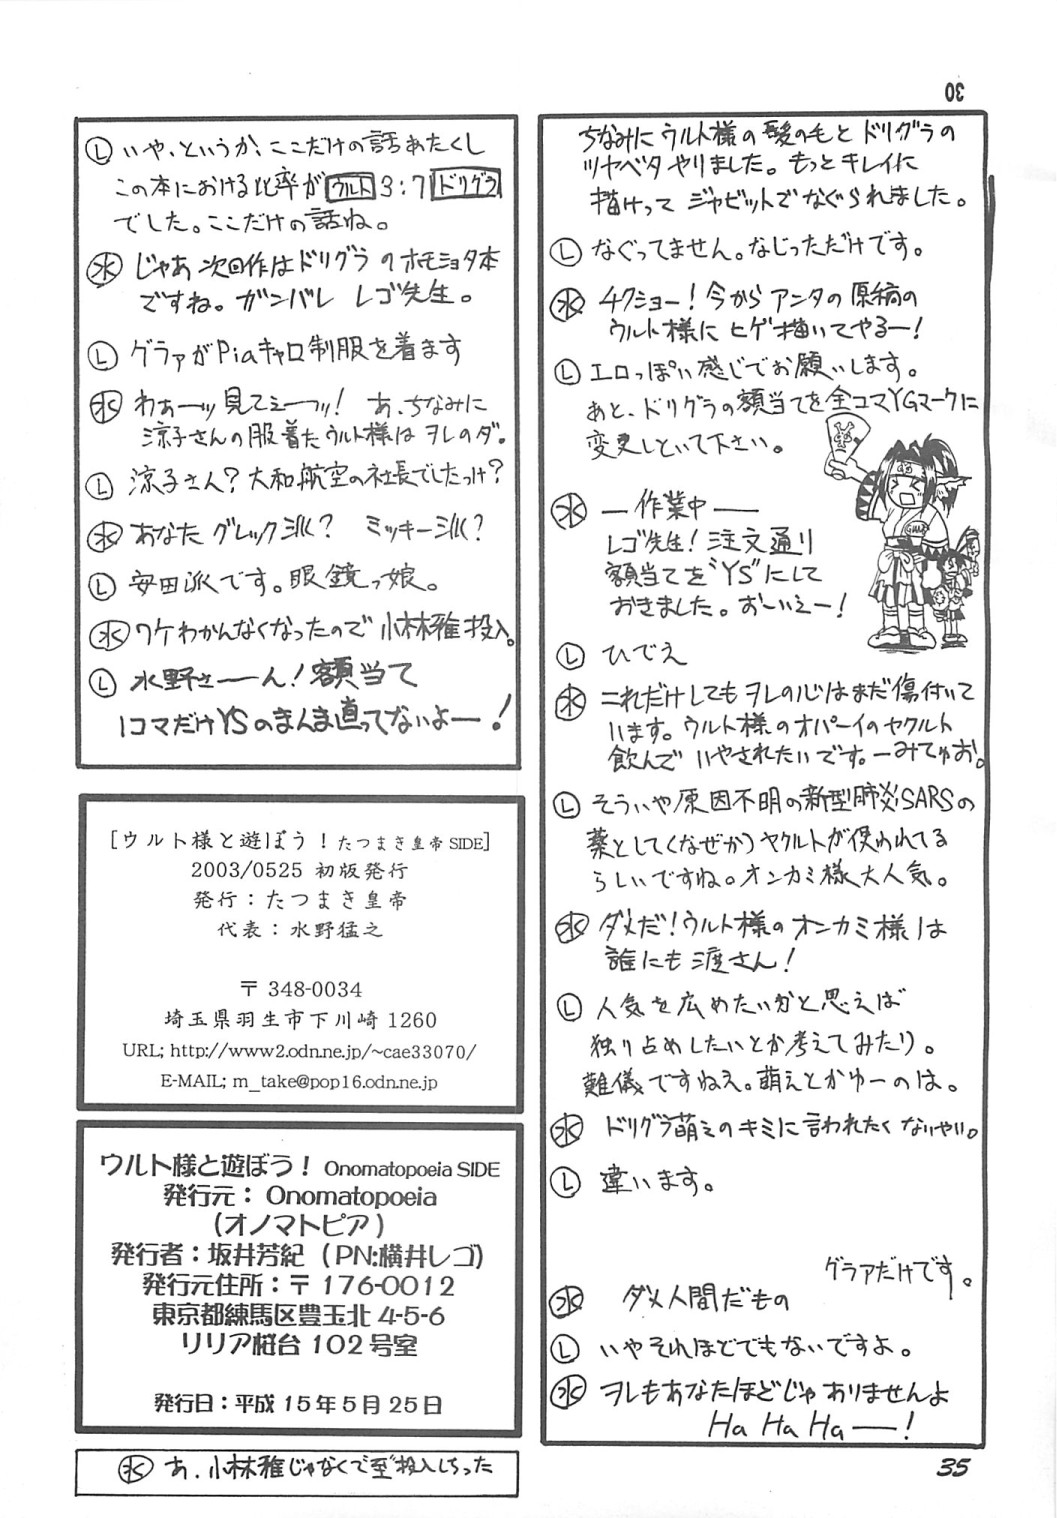 30
ちなみにウルト様の髪の毛とドリグラの
ツヤベタやりました。もっとキレイに
描けって ジャビットでなぐられました。
Ⓛ なぐってません。なじっただけです。
㊌ チクショー！今からアンタの原稿の
ウルト様に ヒゲ描いてやるー！
Ⓛ エロっぽい感じでお願いします。
あと、ドリグラの額当てを全コマYGマークに
変更しといて下さい。
㊌ ― 作業中 ―
レゴ先生！注文通り
額当てを“YS”にして
おきました。おーいえー！
Ⓛ ひでえ
㊌ これだけしてもヲレの心はまだ傷付いて
います。ウルト様のオパーイのヤクルト
飲んで いやされたいです。―みてゅお。
Ⓛ そういや原因不明の新型肺炎SARSの
薬として(なぜか)ヤクルトが使われてる
らしいですね。オンカミ様大人気。
㊌ ダメだ！ウルト様のオンカミ様は
誰にも渡さん！
Ⓛ 人気を広めたいかと思えば
独り占めしたいとか考えてみたり。
難儀ですねえ。萌えとかゆーのは。
㊌ ドリグラ萌えのキミに言われたくないやい。
Ⓛ 違います。
グラァだけです。
㊌ ダメ人間だもの
Ⓛ いやそれほどでもないですよ。
㊌ ヲレもあなたほどじゃありませんよ
Ha Ha Ha ―！
Ⓛ いや、というか、ここだけの話あたくし
この本における比率がウルト3:7ドリグラ
でした。ここだけの話ね。
㊌ じゃあ次回作はドリグラのホモショタ本
ですね。ガンバレ レゴ先生。
Ⓛ グラァがPiaキャロ制服を着ます
㊌ わぁーッ見てぇーッ！ あ、ちなみに
涼子さんの服着たウルト様はヲレのダ。
Ⓛ 涼子さん？大和航空の社長でしたっけ？
㊌ あなた グレック派？ ミッキー派？
Ⓛ 安田派です。眼鏡っ娘。
㊌ ワケわかんなくなったので 小林雅投入。
Ⓛ 水野さーん！額当て
1コマだけYSのまんま直ってないよー！
[ウルト様と遊ぼう！たつまき皇帝 SIDE]
2003/0525 初版発行
発行：たつまき皇帝
代表：水野猛之
〒 348-0034
埼玉県羽生市下川崎 1260
URL; http://www2.odn.ne.jp/~cae33070/
E-MAIL; m_take@pop16.odn.ne.jp
ウルト様と遊ぼう！ Onomatopoeia SIDE
発行元： Onomatopoeia
(オノマトピア)
発行者：坂井芳紀 (PN:横井レゴ)
発行元住所：〒 176-0012
東京都練馬区豊玉北 4-5-6
リリア桜台 102 号室
発行日：平成 15 年 5 月 25 日
㊌ あ、小林雅じゃなくて至投入しちった
35